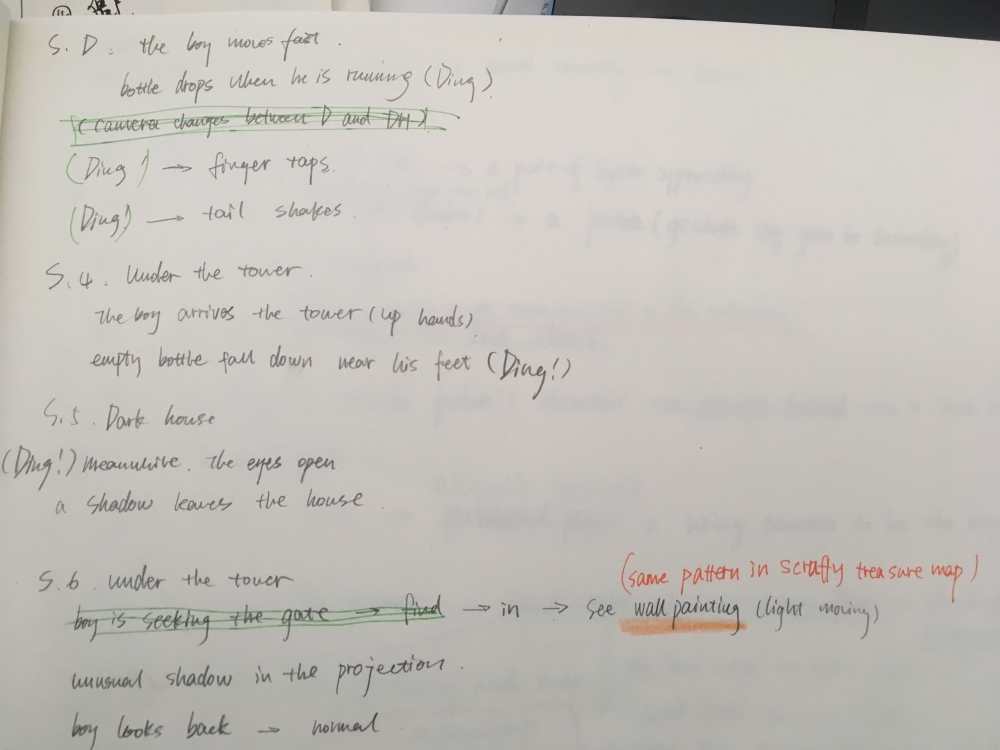 S. D. the boy moves fast.
bottle drops when he is running (Ding)
(camera changes between D and DH)
(Ding!) → finger taps.
(Ding!) → tail shakes.
S.4. Under the tower.
The boy arrives the tower (up hands)
empty bottle fall down near his feet (Ding!)
S.5. Dark house
(Ding!) meanwhile. The eyes open
a shadow leaves the house.
S.6. under the tower
(same pattern in scraffy treasure map)
boy is seeking the gate → find → in → see wall painting (light moving)
unusual shadow in the projection.
boy looks back → normal